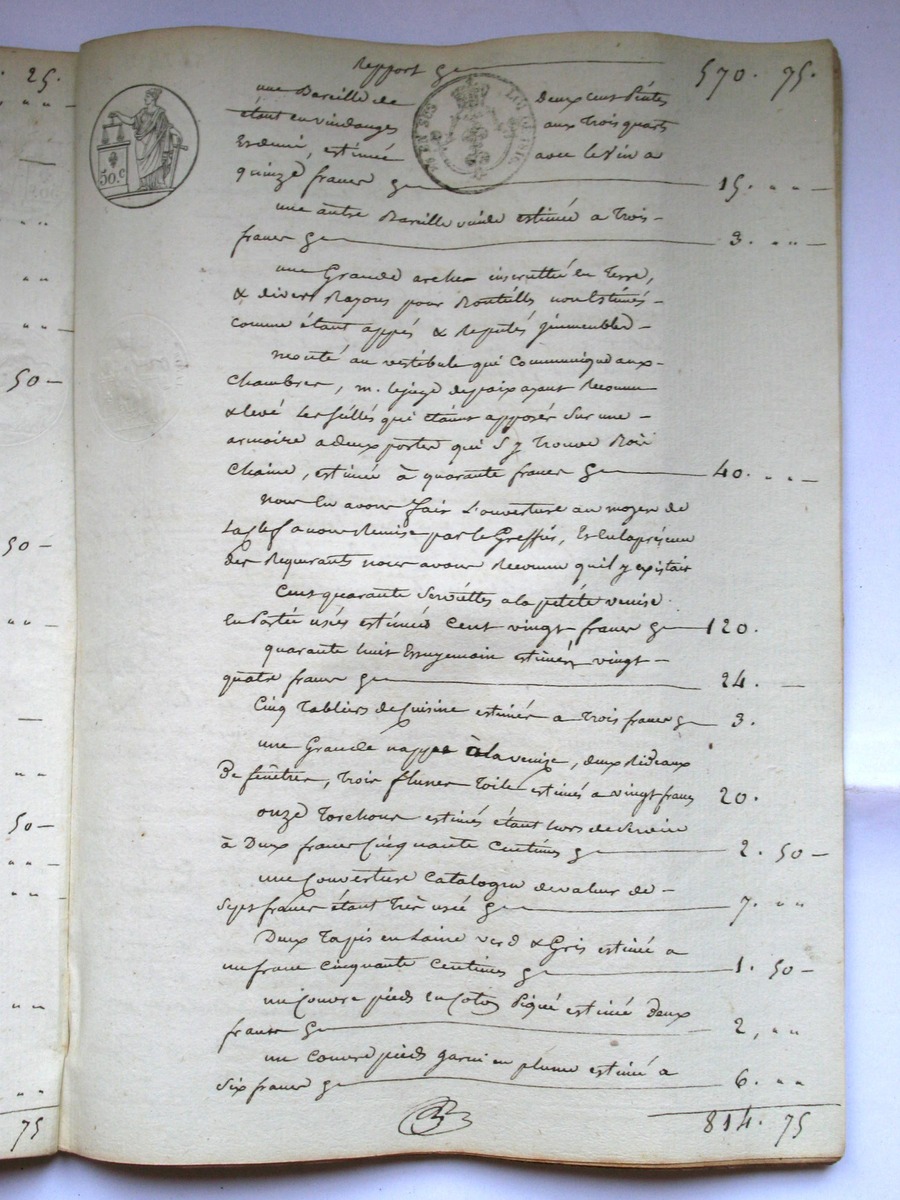 25.
50 —
50 —
50 —
75
50.c
EN SUS
LOI DE 1816
Report 570. 75.
une Bareille de Deux cent Pintes
étant en vindanges aux trois quarts
Et demi, estimée avec le vin a
quinze francs 15. " " —
une autre Bareille vuide estimée a trois -
francs 3. " " —
une Grande archer incrustté en Terre,
& divers Rayons pour Bouteills non Estimés -
comme étant appés & Reputés jmmeubles -
monté au vestébule qui Communique aux -
Chambres, m. lejuge depaix ayant Reconnu
& levé Les séllés qui étaint apposés sur une -
armoire a deux portes qui s'y trouve Bois
Chaine, estimée à quarante francs 40. " " —
nous En avons fait L'ouverture au moyen de
La Clef a nous Remise par le Greffiér, Et En la présence
des Requerants nous avons Reconnu qu'il y existait
Cent quarante Serviéttes a la petite venise
En Partée usées estimées Cent vingt francs 120.
quarante huit Essuyemain estimés vingt -
quatre francs 24. —
Cinq Tabliers de Cuisine estimés a Trois francs 3.
une Grande nappe à la venise, deux Rideaux
De fenêtres, Trois Toile estimés a vingt francs 20.
onze Torchons estimés étant hors de Service
à Deux francs Cinquante Centimes 2. 50 —
une Couverture Catalogne de valeur de -
Sept francs étant Trés usée 7. " "
Deux Tapis en Laine verd & Gris estimés a
un franc Cinquante Centimes 1. 50 —
un Couvre pieds En Coton Piqué estimé Deux
francs 2, " "
un Couvre pieds garni en plume estimé a
Six francs 6. " "
814. 75